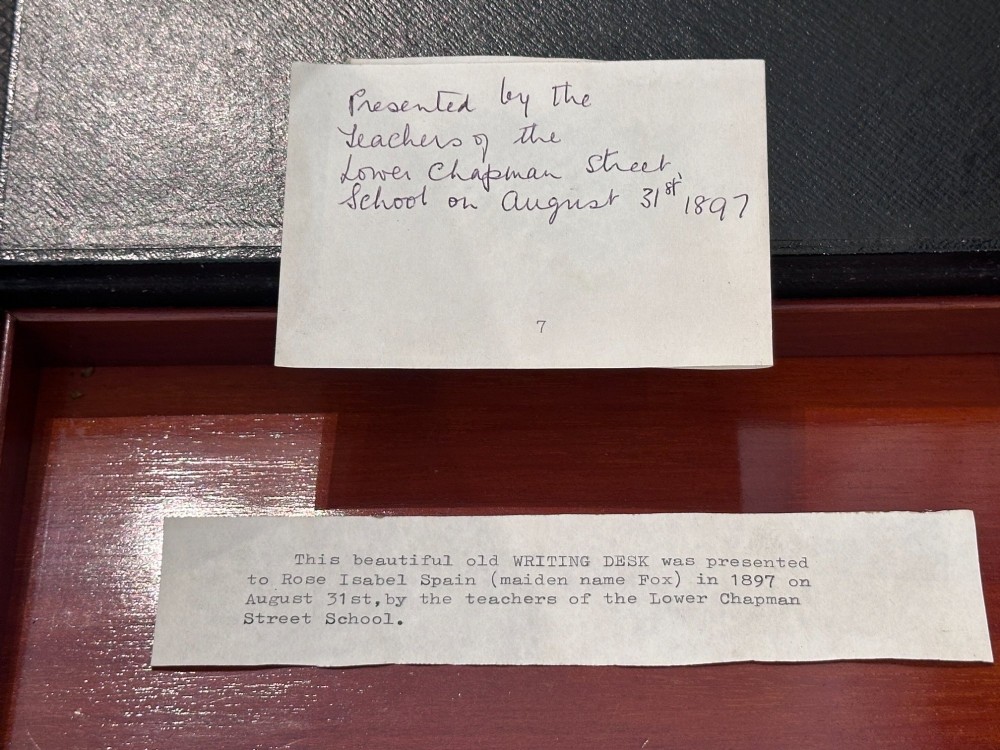 Presented by the
Teachers of the
Lower Chapman Street
School on August 31st 1897
7
This beautiful old WRITING DESK was presented
to Rose Isabel Spain (maiden name Fox) in 1897 on
August 31st,by the teachers of the Lower Chapman
Street School.